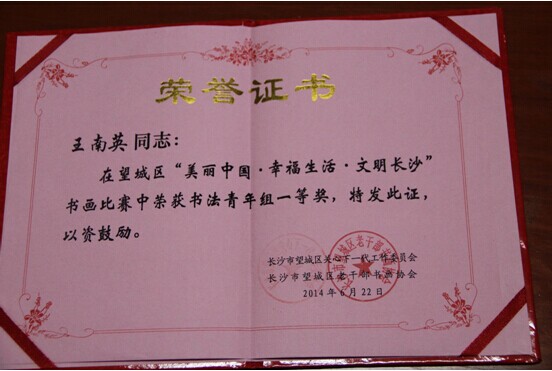 荣誉证书
王南英同志：
在望城区“美丽中国·幸福生活·文明长沙”
书画比赛中荣获书法青年组一等奖，特发此证，
以资鼓励。
长沙市望城区关心下一代工作委员会
长沙市望城区老干部书画协会
2014年6月22日